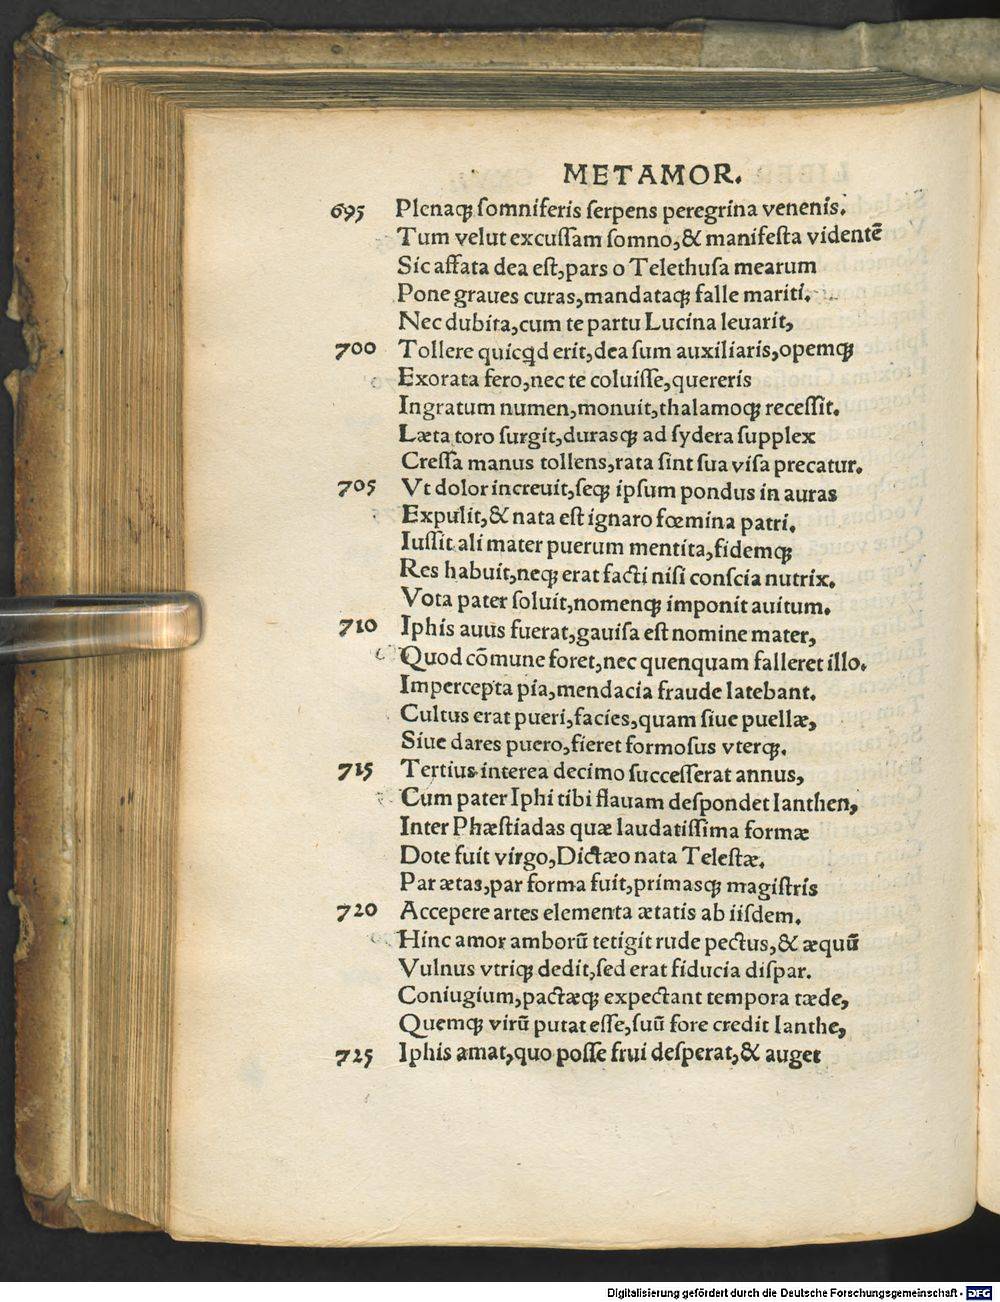 METAMOR.
695 Plenaqꝫ ſomniferis ſerpens peregrina venenis.
Tum velut excuſſam ſomno,& manifeſta videntē
Sic affata dea eſt,pars o Telethuſa mearum
Pone graues curas,mandataqꝫ falle mariti.
Nec dubita,cum te partu Lucina leuarit,
700 Tollere quicꝗd erit,dea ſum auxiliaris,opemqꝫ
Exorata fero,nec te coluiſſe,quereris
Ingratum numen,monuit,thalamoqꝫ receſſit.
Læta toro ſurgit,durasqꝫ ad ſydera ſupplex
Creſſa manus tollens,rata ſint ſua viſa precatur.
705 Vt dolor increuit,ſeqꝫ ipſum pondus in auras
Expulit,& nata eſt ignaro fœmina patri.
Iuſſit ali mater puerum mentita,fidemqꝫ
Res habuit,neqꝫ erat facti niſi conſcia nutrix.
Vota pater ſoluit,nomenqꝫ imponit auitum.
710 Iphis auus fuerat,gauiſa eſt nomine mater,
Quod cōmune foret,nec quenquam falleret illo.
Impercepta pia,mendacia fraude latebant.
Cultus erat pueri,facies,quam ſiue puellæ,
Siue dares puero,fieret formoſus vterqꝫ.
715 Tertius interea decimo ſucceſſerat annus,
Cum pater Iphi tibi flauam deſpondet Ianthen,
Inter Phæſtiadas quæ laudatiſſima formæ
Dote fuit virgo,Dictæo nata Teleſtæ.
Par ætas,par forma fuit,primasqꝫ magiſtris
720 Accepere artes elementa ætatis ab iiſdem.
Hinc amor amborū tetigit rude pectus,& æquū
Vulnus vtriqꝫ dedit,ſed erat fiducia diſpar.
Coniugium,pactæqꝫ expectant tempora tæde,
Quemqꝫ virū putat eſſe,ſuū fore credit Ianthe,
725 Iphis amat,quo poſſe frui deſperat,& auget
Digitalisierung gefördert durch die Deutsche Forschungsgemeinschaft - DFG